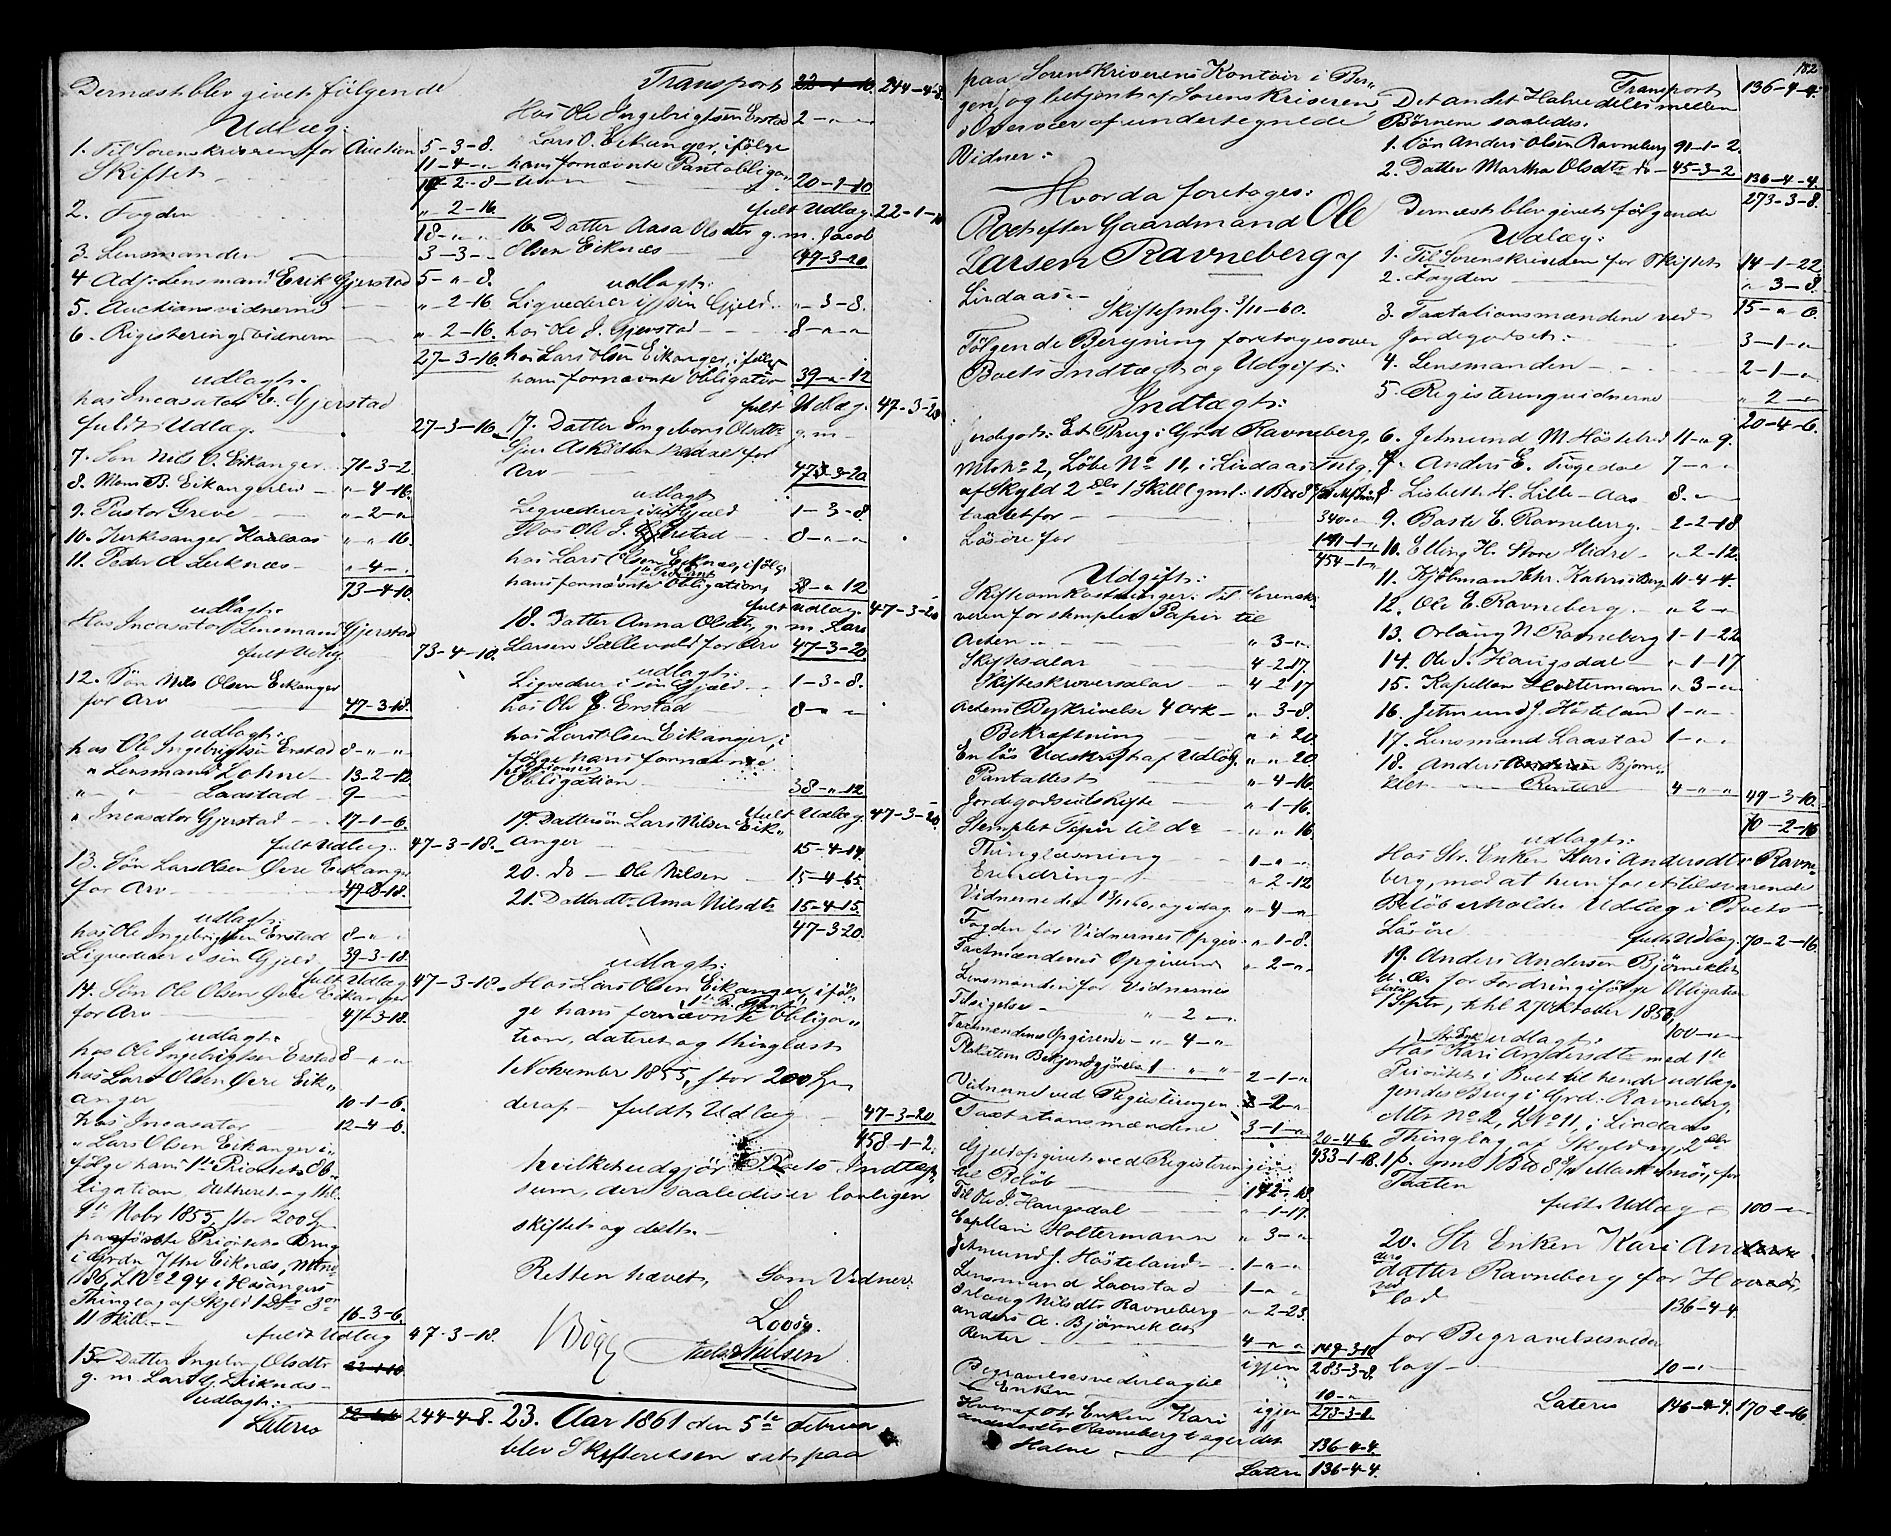 Dernæst blev givet følgende
Udlæg:
1. Til Sorenskriveren for Auction 5-3-8.
Skiftet 11-4-"
17-2-8
2. Fogden " 2-16.
18-"-"
3. Lensmanden 3-3-"
4 Adj: Lensmand Erik Gjerstad 5-"-8.
5. Auctionsvidnerne " 2-16
6. Registeringsvidnerne " 2-16.
27-3-16
udlagt:
hos Incasator E. Gjerstad
fuldt Udlæg 27-3-16
7. Søn Nils O. Eikanger 71-3-2.
8. Mons B. Eikangerlid "-4-16.
9. Pastor Greve "-2-"
10. Kirkesanger Kaalaas "-"-16.
11. Peder A Leiknæs "-4-"
73-4-10.
udlagt:
Hos Incasator Lensmand Gjerstad
fuldt Udlæg 73-4-10.
12. Søn Nils Olsen Eikanger
for Arv 47-3-18.
udlagt:
hos Ole Ingebrigtsen Erstad 8-"-"
" Lensmand Lohne 13-2-12
" " Laastad 9-
" Incasator Gjerstad 17-1-6.
fuldt Udlæg 47-3-18.
13. Søn Lars Olsen Øvre Eikanger
for Arv 47-3-18.
udlagt:
hos Ole Ingebrigtsen Erstad 8-"-"
Ligvederer i sin Gjeld 39-3-18
fuldt Udlæg 47-3-18.
14. Søn Ole Olsen Øvre Eikanger
for Arv 47-3-18.
udlagt:
hos Ole Ingebrigtsen Erstad 8-"-"
hos Lars Olsen Øvre Eik"
anger 10-1-6.
hos Incasator 12-4-6.
" Lars Olsen Eikanger i"
følge hans 1ste Prioritets Ob"
ligation, datteret og thl.
1ste Nobr 1855, stor 200
paa første Prioritets Brug
i Grdn Ytre Eiknæs, Mtno
186, LNo 294 i Hosangers
Thinglag af Skyld 1 Dlr 3 ort
11 Skill. 16-3-6.
fuldt Udlæg 47-3-18.
15. Datter Ingebor Olsdtr 22-1-10
g. m. Lars Leiknæs
udlagt:
Lateris 22-1-10 244-4-8.
Transport 22-1-10. 244-4-8
Hos Ole Ingebrigtsen Erstad 2-"-"
Lars O. Eikanger, ifølge
hans fornævnte Pantobliga"
tion 20-1-10
fuldt Udlæg 22-1-10
16. Datter Aasa Olsdtr g. m. Jacob
Olsen Eiknæs 47-3-20
udlagt:
Ligvederer i sin Gjeld "-3-8.
hos Ole J. Gjerstad 8-"-"
hos Lars Olsen Eikanger, ifølge
hans fornævnte Obligation 39-"-12
fuldt Udlæg 47-3-20
17. Datter Ingebor Olsdtr g. m.
Arv 47-3-20
udlagt
Ligvederer i sin Gjeld 1-3-8.
Hos Ole J. Gjerstad 8-"-"
hos Lars Olsen Eikanger ifølg
hans fornævnte Obligation, 38-"-12
fuldt Udlæg 47-3-20
18. Datter Anna Olsdtr, g. m. Lars
Larsen Sællevold for Arv 47-3-20
udlagt:
Ligvederer i sin Gjæld 1-3-8.
hos Ole J. Erstad 8-"-"
hos Lars Olsen Eikanger, i
følge hans fornævnte
Obligation 38-"-12
fuldt Udlæg 47-3-20.
19. Dattersøn Lars Nilsen Eik"
anger 15-4-14.
20. do Ole Nilsen 15-4-15.
21. Datterdtr Anna Nilsdtr 15-4-15.
47-3-20.
udlagt:
Hos Lars Olsen Eikanger, iføl"
ge hans fornævnte Obliga"
tion, dateret og thinglæst
1 November 1855, stor 200
deraf fuldt Udlæg 47-3-20
458-1-2.
hvilket udgjør Boets Indtægt
sum, der saaledes er lovligen
skiftet og deelt.
Retten hævet. Som Vidner:
23. Aar 1861 den 5te Februar
blev Skifteretten sat paa
paa Sorenskriverens Kontoir i Ber"
gen, og betjent af Sorenskriveren
i Overvær af undertegnede
Vidner:
Hvorda foretoges:
Boet efter Gaardmand Ole
Larsen Ravneberg af
Lindaas.
Skiftesmlg. 3/11-60.
Følgende Berigning foretoges over
Boets Indtægt og Udgift:
Indtægt:
Jordegods: Et Brug i Grd Ravneberg,
Mtno 2, Løbe No 11, i Lindaas Thlg.
af Skyld 2 Dlr 1 Skill
taxtet for 340-"-"
Løsøre for 114-1-"
454-1-"
Udgift:
Skifteomkostninger: Til Sorensk"
veren for stemplet Papir til
Acten "3-"
Skiftesalær 4-2-17
Skifteskriversalær 4-2-17
Actens Beskrivelse 4 Ark " 3-8.
Bekræftning "-"-20.
En løs Udskrift af Udlæg "-"-20
Pantattest "-4-16.
Jordegodsudskifte "-1-16.
Stemplet Papir til do "-"-16
Thinglæsning 1-"-"
Erindring "-2-12
Vidnerne den 13/11 60, og idag "-4-"
Fogden for Vidnernes Opgiv. "-1-8.
Taxtmændenes Opgivend "-2-"
Lensmanden for Vidnernes
Tilsigelse "-2-"
Taxmændens Opgivende "-4-"
Plakatens Bekjendtgjørelse 1-"-" 2-1-"
Vidnerne ved Registeringen "-2-"
Taxtationsmændene 3-1-" 20-4-6.
433-1-18.
Gjeld opgivet ved Registeringen
til Beløb 142-"-18.
Til Ole J. Haugsdal "-1-17.
Capellan Holtermann "3-"
Jetmund J. Hösteland 1-"-"
Lensmand Laastad 1-"-"
Orlaug Nilsdtr Ravneberg "-2-23.
Anders A. Bjørneklet
Renter 4-"-" 149-3-10
igjen 283-3-8.
Begravelsesvederlag til
Enken 10-"-"
igjen 273-3-8
Hvoraf Str. Enken Kari
Andersdtr Ravneberg tager det
Halve 136-4-4.
Lateris 136-4-4.
182
Transport 136-4-4.
Det andet Halve deles mellem
Børnene saaledes.
1. Søn Anders Olsen Ravneberg 91-1-2.
2. Datter Martha Olsdtr do 45-3-2. 136-4-4.
273-3-8.
Dernæst blev givet følgende
Udlæg:
1. Til Sorenskriveren for Skiftet 14-1-22.
2. Fogden " 3-8.
15-"-6.
3. Taxtationsmændene ved
Jordegodset 3-1-"
4. Lensmanden 2-1-"
5. Registeringsvidnerne " 2-"
20-4-6.
6. Jetmund M Hösteland 11-"-9.
7. Anders E. Fugedal 7-"-"
8. Lisbeth H. Lille-Aas 8.-"-"
9. Baste E. Ravneberg 2-2-18
10. Elling H. Store Midre "-2-12.
11. Kjøbmand Chr. Kahrs i Berg. 11-4-4.
12. Ole E. Ravneberg "-2-"
13. Orlaug N. Ravneberg 1-1-22
14. Ole J. Haugsdal "-1-17
15. Kapellan Holtermann "-3-"
16. Jetmund J. Hösteland 1-"-"
17. Lensmand Laastad 1-"-"
18. Anders Andersen Bjørne"
klet Renter 4-"-" 49-3-10.
70-2-16
udlagt:
Hos Str. Enken Kari Andersdtr Ravne"
berg, mod at hun for et tilsvarende
Beløb erholder Udlæg i Boets
Løsøre fuldt Udlæg 70-2-16
19. Anders Andersen Bjørneklet
for Fordring ifølge Obligation
Septr, thl 27 Oktober 1856, 100-"-"
udlagt:
Hos Str. Enk. Kari Andersdtr med 1ste
Prioritet i Boet til hende udlæg"
gendes Brug i Grd. Ravneberg,
Mtr No 2, LNo 11, i Lindaas
Thinglag af Skyld ny 2 Dlr
1 ß. gml 1 Bd 8 Mark Smør, for
Taxten
fuldt Udlæg 100-"-"
20. Str Enken Kari Anders
datter Ravneberg for Hoved"
lod 136-4-4
for Begravelsesveder
lag 10-"-"
Lateris 146-4-4. 170-2-16